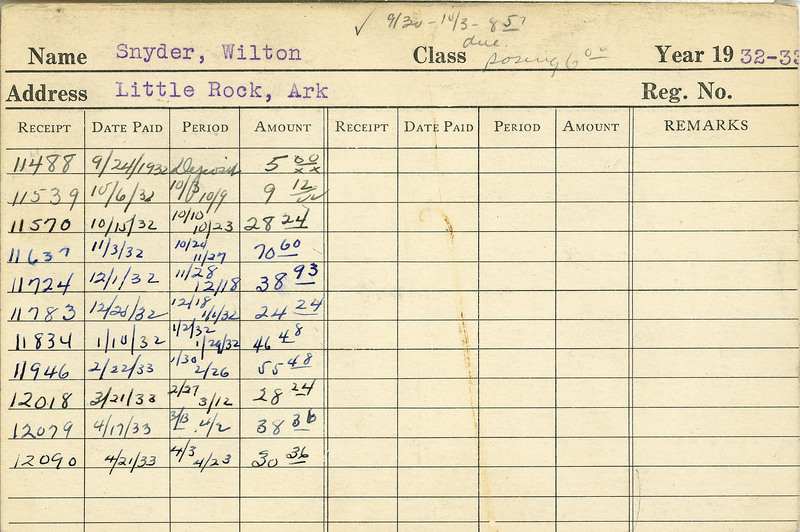 ✓ 9/30 - 10/3 - 8 57
due
Name Snyder, Wilton Class Posing 6 00 Year 19 32-33
Address Little Rock, Ark Reg. No.
RECEIPT DATE PAID PERIOD AMOUNT RECEIPT DATE PAID PERIOD AMOUNT REMARKS
11488 9/24/1932 Deposit 5 00 xx
11539 10/6/32 10/3 10/9 9 12
11570 10/15/32 10/10 10/23 28 24
11637 11/3/32 10/24 11/27 70 60
11724 12/1/32 11/28 12/18 38 93
11783 12/20/32 12/18 1/1/32 24 24
11834 1/10/32 1/2/32 1/29/32 46 48
11946 2/22/33 1/30 2/26 55 48
12018 3/21/33 2/27 3/12 28 24
12079 4/17/33 3/13 4/2 38 36
12090 4/21/33 4/3 4/23 30 36